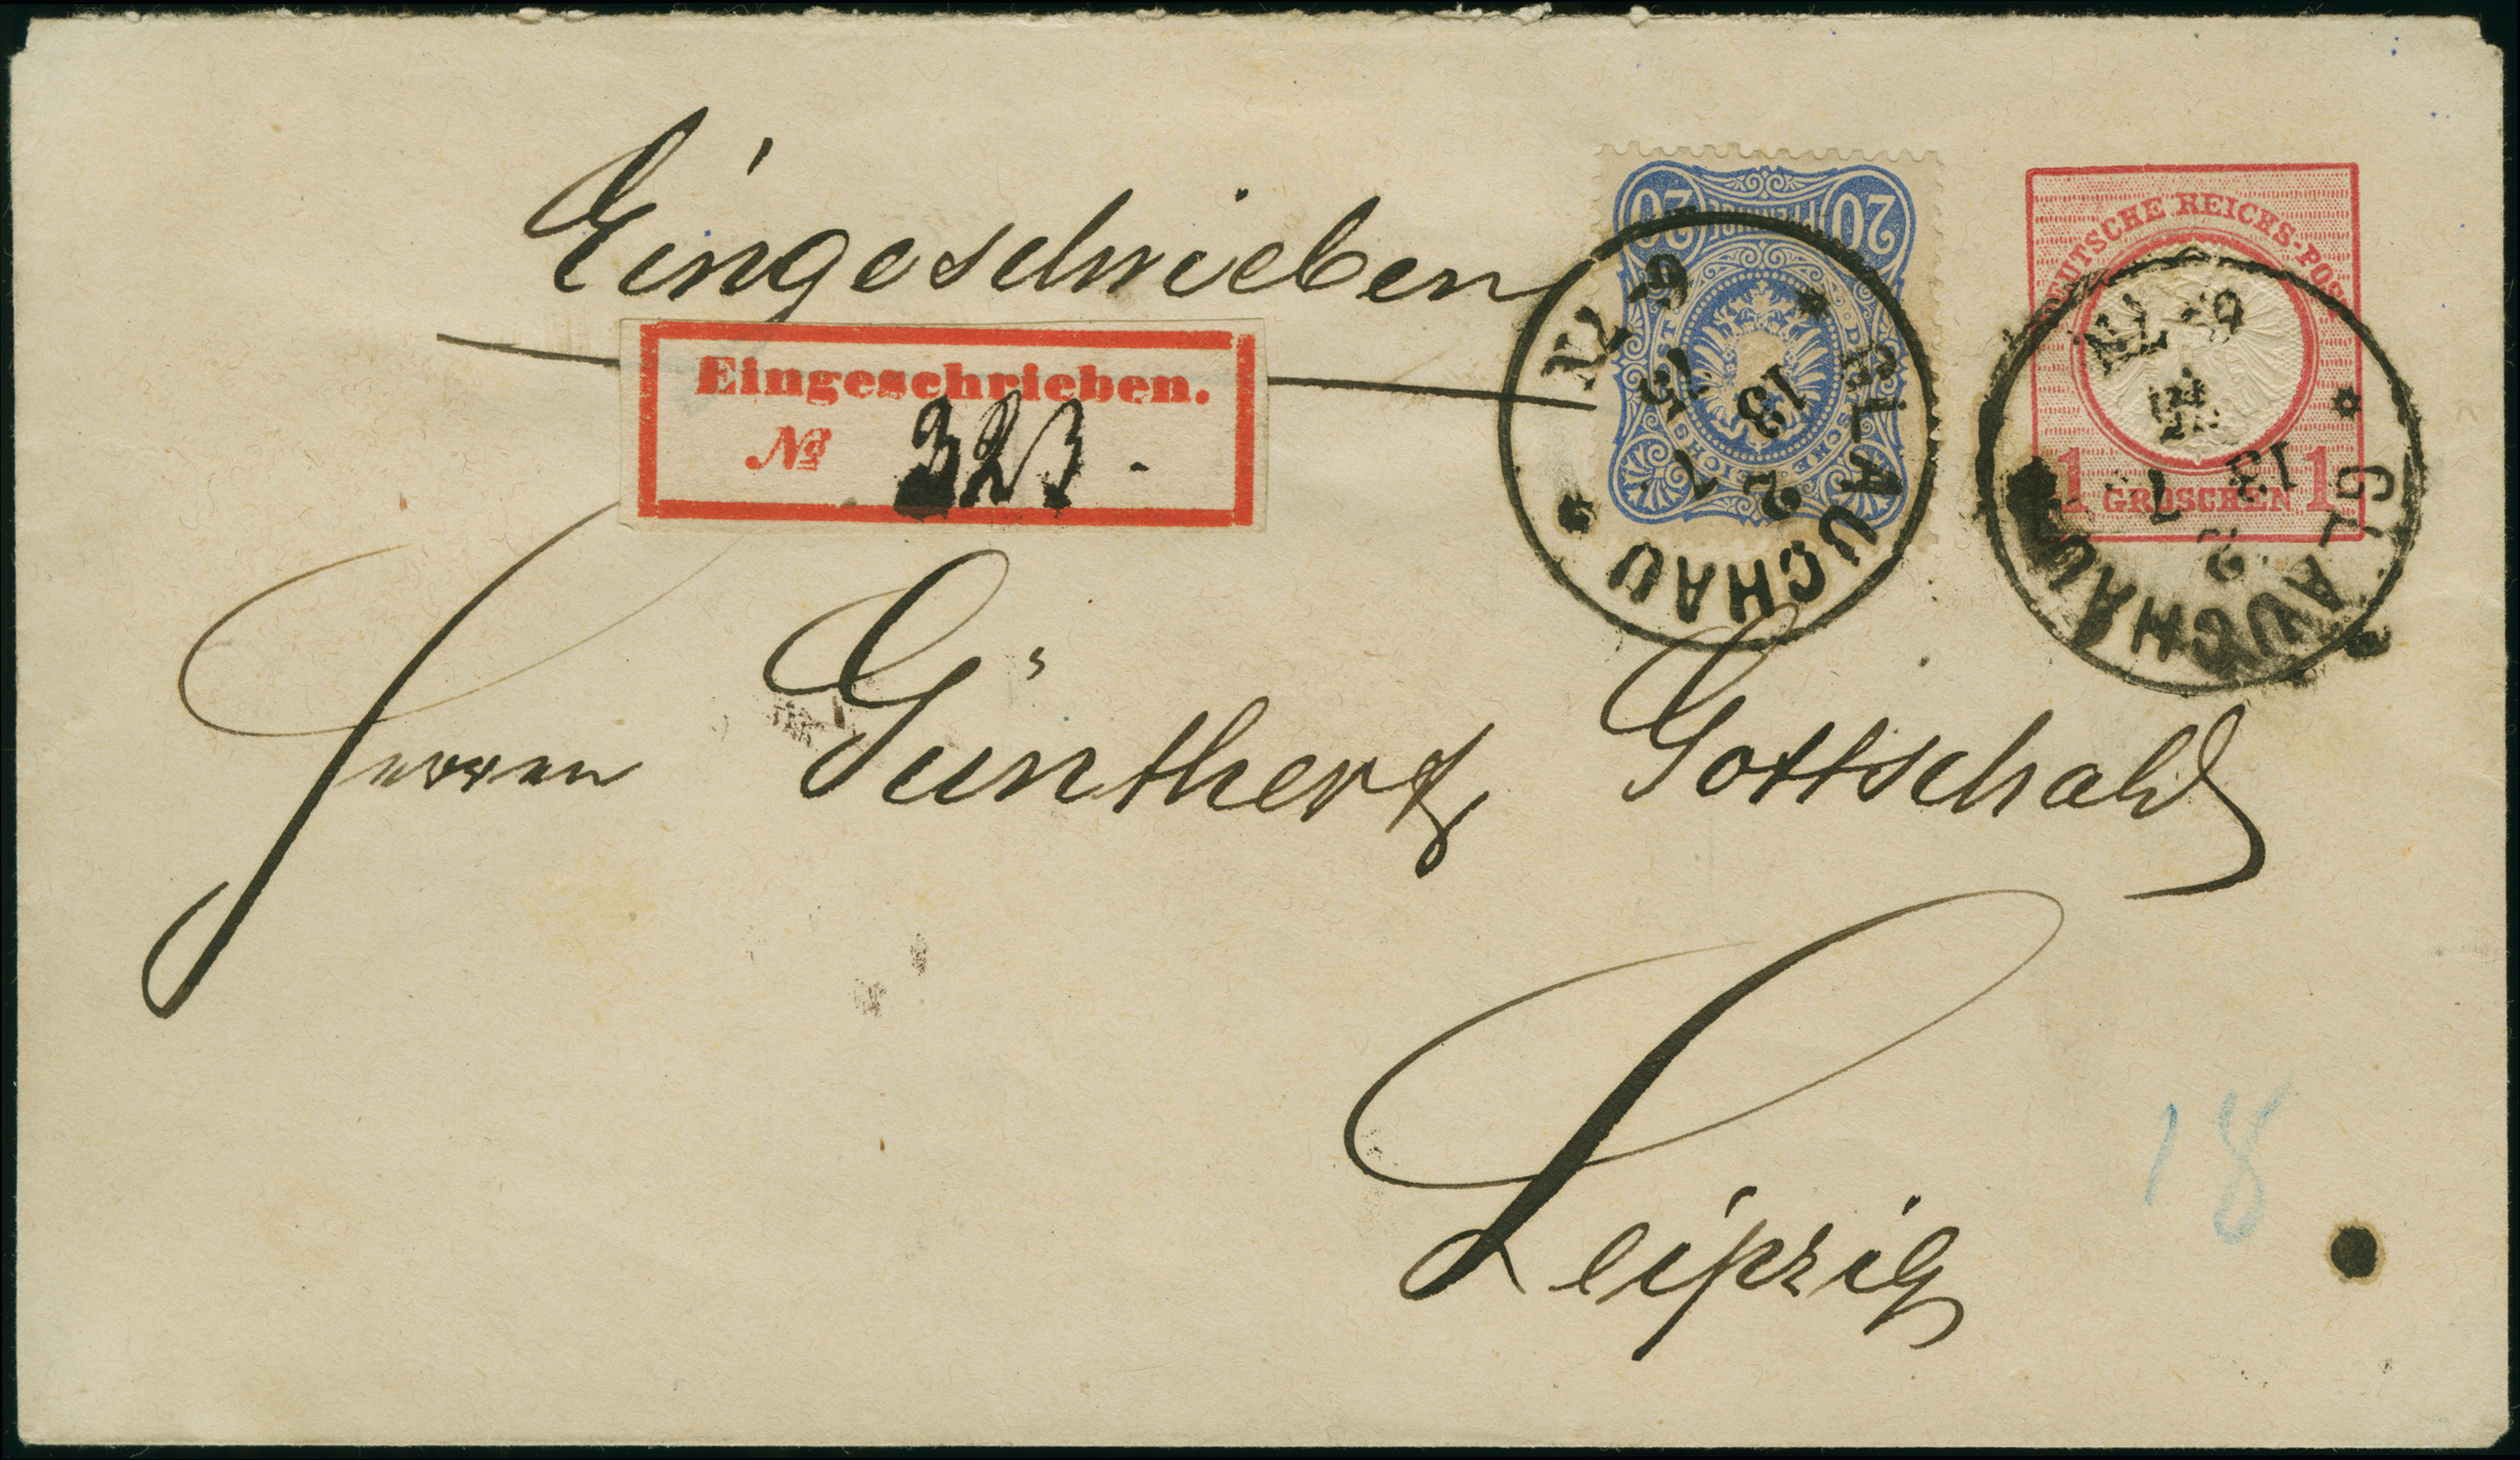 Eingeschrieben
Eingeschrieben.
No 323.
20 PFENNIGE 20
GLAUCHAU
13 1 75
6-7N
2
DEUTSCHE REICHS-POST
1 GROSCHEN 1
GLAUCHAU
13 1
6-7N
2
Herren Günther & Gottschald
Leipzig
18